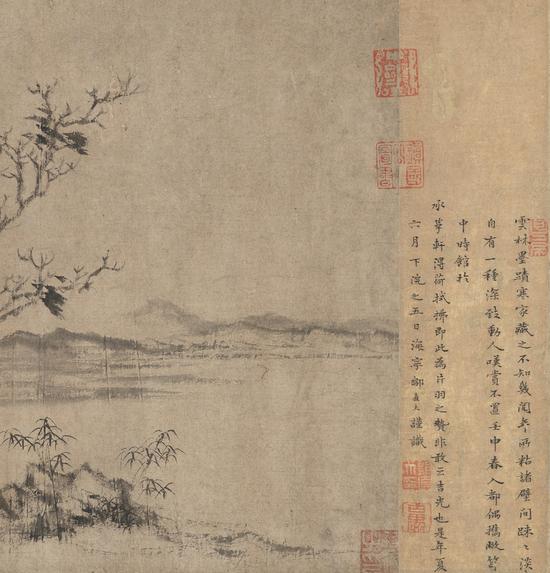 雲林墨蹟寒家藏之不知幾閱年所粘諸壁間踈〻淡
自有一種深致動人嘆賞不置壬申春入都偶攜敝笥
中時館於
承華軒得荷拭擠即此為片羽之贊非敢云吉光也是年夏
六月下浣之五日海寧 謹識